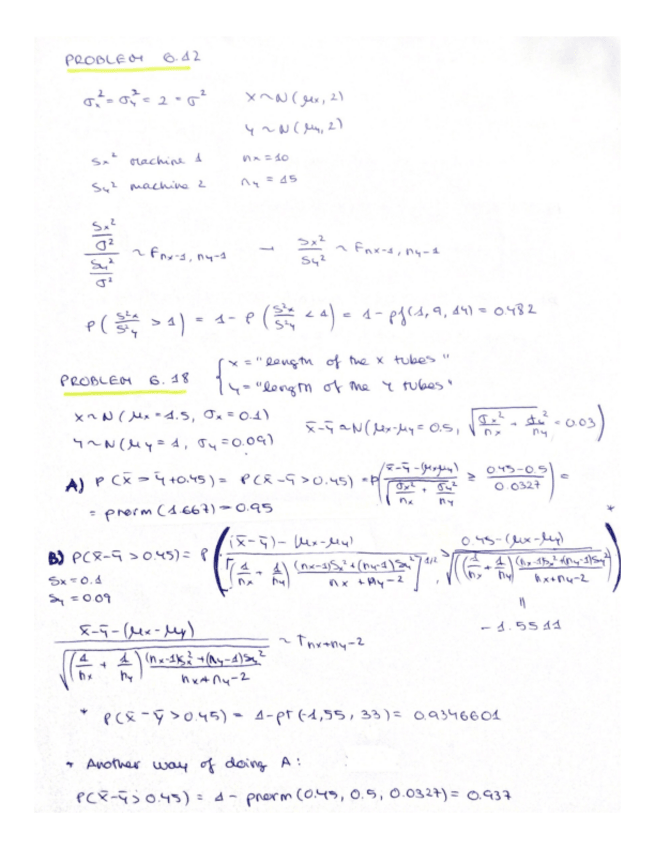 PROBLEM 6.12
σx² = σy² = 2 = σ² X ~ N(μx, 2)
Y ~ N(μy, 2)
Sx² machine 1 nx = 10
Sy² machine 2 ny = 15
(Sx²/σ²)/(Sy²/σ²) ~ Fnx-1, ny-1 → Sx²/Sy² ~ Fnx-1, ny-1
P(S²x/S²y > 1) = 1 - P(S²x/S²y < 1) = 1 - pf(1, 9, 14) = 0.482
PROBLEM 6.18 { x = "length of the x tubes"
y = "length of the Y tubes"
X ~ N(μx = 1.5, σx = 0.1)
Y ~ N(μy = 1, σy = 0.09) x̄-ȳ ~ N(μx-μy = 0.5, √(σx²/nx + σy²/ny) = 0.03)
A) P(x̄ > ȳ + 0.45) = P(x̄-ȳ > 0.45) = P((x̄-ȳ-(μx-μy))/√(σx²/nx + σy²/ny) ≥ (0.45-0.5)/0.0327) =
= pnorm(1.667) = 0.95
*
B) P(x̄-ȳ > 0.45) = P( ((x̄-ȳ) - (μx-μy))/[(1/nx + 1/ny) ((nx-1)Sx² + (ny-1)Sy²)/(nx + ny - 2)]^1/2 > (0.45-(μx-μy))/√((1/nx + 1/ny) ((nx-1)Sx² + (ny-1)Sy²)/(nx+ny-2)) )
Sx = 0.1
Sy = 0.09
=
-1.5511
(x̄-ȳ-(μx-μy))/√((1/nx + 1/ny) ((nx-1)Sx² + (ny-1)Sy²)/(nx+ny-2)) ~ Tnx+ny-2
* P(x̄-ȳ > 0.45) = 1-pt(-1,55, 33) = 0.9346601
→ Another way of doing A:
P(x̄-ȳ > 0.45) = 1 - pnorm(0.45, 0.5, 0.0327) = 0.937